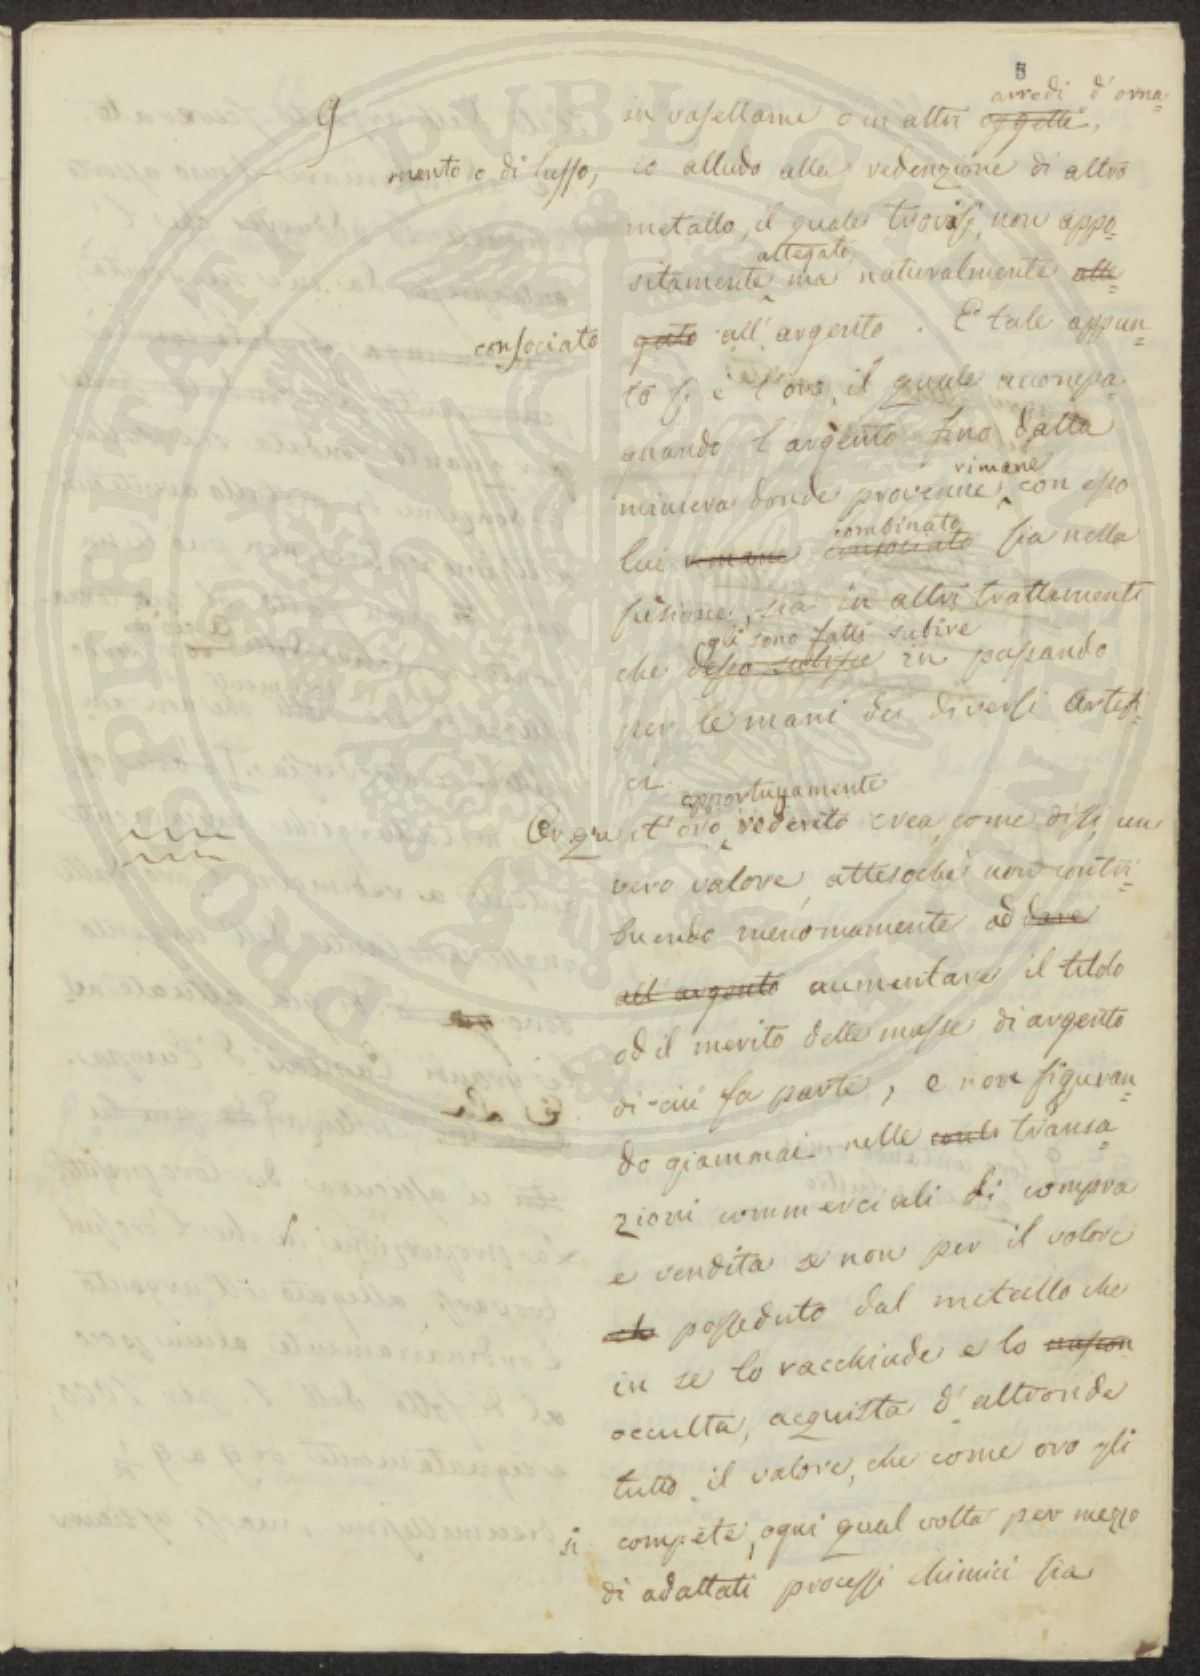 5
9
arredi d'orna=
in vasellame o in altri oggetti,
mento o di lusso, io alludo alla redenzione di altro
metallo, il quale trovasi, non appo=
allegato,
sitamente ma naturalmente alle=
consociato gato all'argento. E tale appun=
to si è l'oro, il quale accompa=
gnando l'argento fino dalla
rimane
miniera donde provenne, con esso
combinato
lui rimane consociato sia nella
fusione, sia in altri trattamenti
gli sono fatti subire
che desso subisce in passando
per le mani dei diversi artefi=
ci.
opportunamente
Or quest'oro redento crea, come dissi, un
vero valore, attesochè non contri=
buendo menomamente ad dare
all'argento aumentare il titolo
od il merito delle masse di argento
di cui fa parte, e non figuran=
do giammai nelle transa=
zioni commerciali di compra
e vendita se non per il valore
che posseduto dal metallo che
in se lo racchiude e lo nascon
occulta, acquista d'altronde
tutto il valore, che come oro gli
si compete, ogni qual volta per mezzo
di adattati processi chimici sia
PROPERITATI PUBLICAE